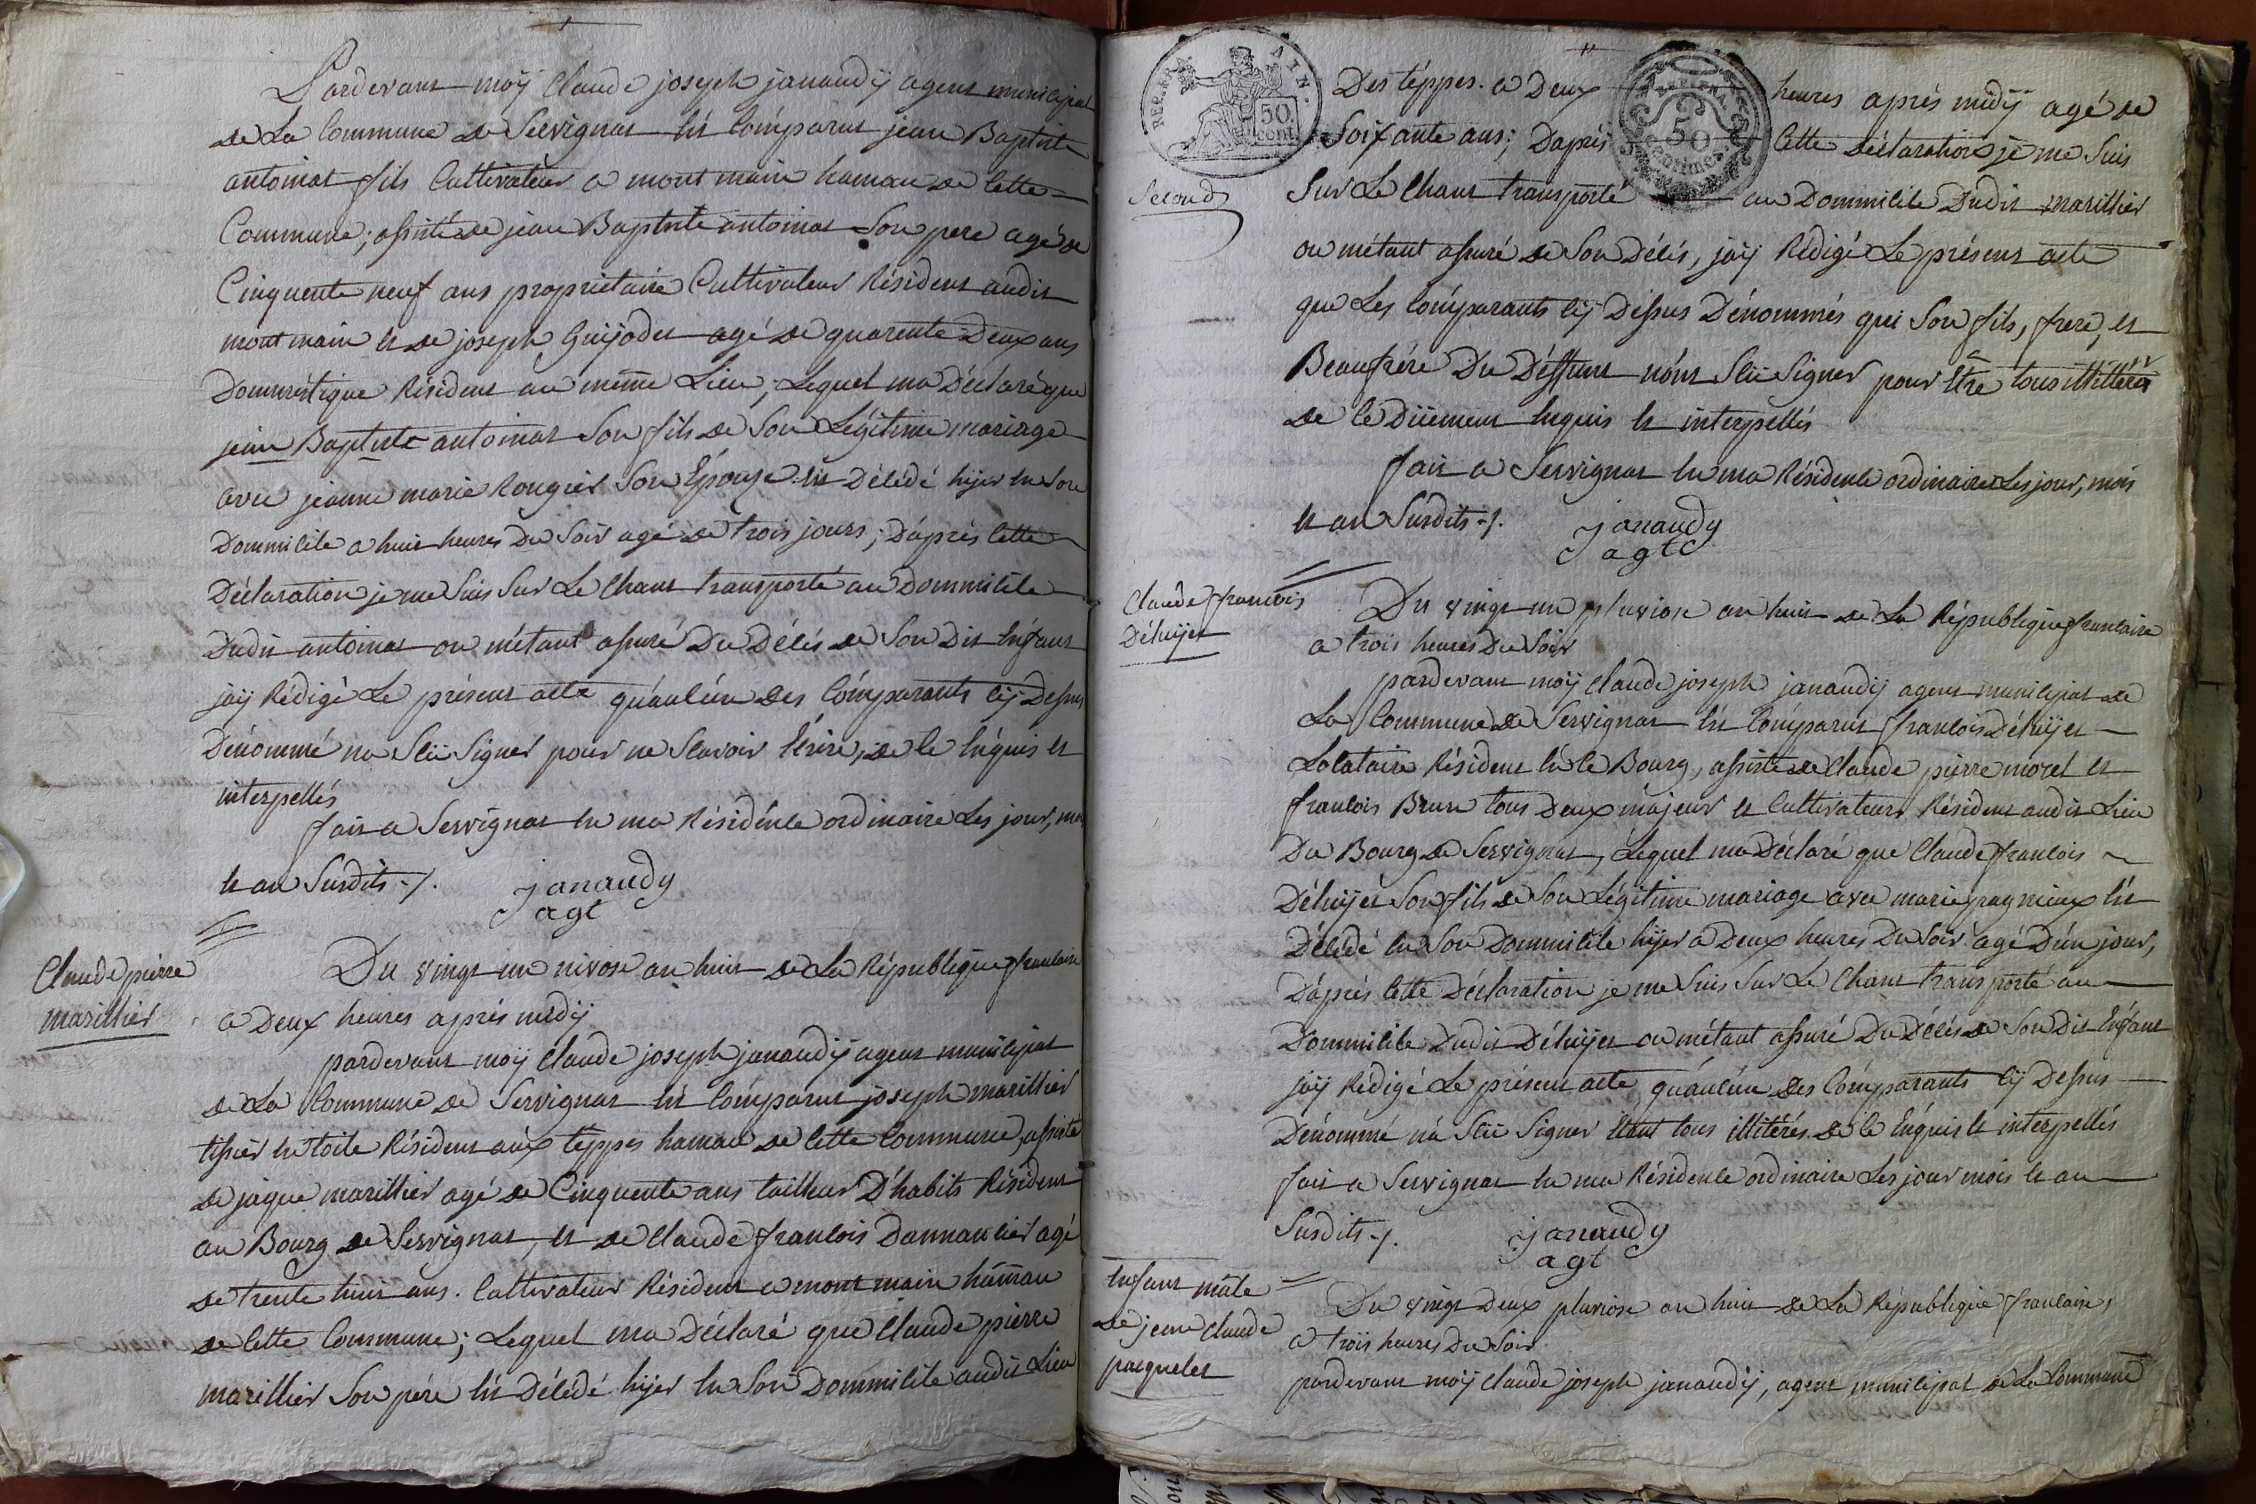 Pardevant moÿ Claude joseph janaudÿ agent municipal
de La Commune de Servignat Est Comparut jean Baptiste
antoinat fils Cultivateur a montmain hameau de Cette
Commune; assisté de jean Baptiste antoinat Son pere agé de
Cinquente neuf ans propriétaire Cultivateur Résident audit
montmain et de joseph Guijodet agé de quarente Deux ans
Dommestique Résident au meme Lieu; Lequel ma Déclaré que
jean Baptiste antoinat Son fils de Son Légitime mariage
avec jeanne marie Rougier Son Epouze Est Décédé hijer En Son
Dommicile a huit heures Du Soir agé de trois jours; Daprès Cette
Déclaration je me Suis Sur Le Chant transporté au Dommicile
Dudit antoinat ou métant assuré Du Décés de Son Dit Enfant
jaÿ Rédigé Le présent acte quaucun des Comparants Cÿ Dessus
Dénommé na Sçu Signer pour ne Scavoir Ecrire, de ce Enquis et
interpellés
fait a Servignat En ma Résidence ordinaire Les jour, moi
Et an Susdits ./.
janaudy
agt
Claude pierre
marillier
Du vingt un nivose an huit de La République francaise
a Deux heures après midÿ
pardevant moÿ Claude joseph janaudÿ agent municipal
de La Commune de Servignat Est Comparut joseph marillier
tissier En toile Résident aux teppes hameau de Cette Commune, assisté
de jaque marillier agé de Cinquente ans tailleur D'habits Résident
au Bourg de Servignat, et de Claude francois Dannancier agé
de trente huit ans. Cultivateur Résident a montmain hameau
de Cette Commune; Lequel ma Déclaré que Claude pierre
marillier Son pére Est Décédé hijer En Son Dommicile audit Lieu
REP. FRA. TIM.
50. cent.
50
Centimes
Des téppes. a Deux heures après midÿ agé de
Soixante ans; Daprés Cette Déclaration je me Suis
Second
Sur Le Chant transporté au Dommicile Dudit marillier
ou métant assuré de Son Décés, jaÿ Rédigé Le présent acte
que Les Comparants Cÿ Dessus Dénommés qui Son fils, frere, et
Beaufrére Du Déffunt nónt Sçu Signer pour Etre tous illittérés
de Ce Duement Enquis Et interpellés
fait a Servignat En ma Résidence ordinaire Les jour, mois
Et an Susdits ./.
janaudy
agt
Claude francois
Décuijer
Du vingt un pluviose an huit de La République francaise
a trois heures Du Soir
pardevant moÿ Claude joseph janaudÿ agent municipal de
La Commune de Servignat Est Comparut francois Décuijer
Locataire Résident En Ce Bourg, assisté de Claude pierre morel Et
francois Brun tous Deux majeur Et Cultivateurs Résident audit Lieu
Du Bourg de Servignat, Lequel ma Déclaré que Claude francois
Décuijer Son fils de Son Légitime mariage avec marie pagnieux Est
Décédé En Son Dommicile hijer a Deux heures Du Soir agé D'un jour,
D'après Cette Déclaration je me Suis Sur Le Chant transporté au
Dommicile Dudit Décuijer ou métant assuré Du Décés de Son Dit Enfant
jaÿ Rédigé Le présent acte, quaucun Des Comparants Cÿ Dessus
Dénommé ná Sçu Signer Etant tous illitérés. de Ce Enquis Et interpellés
fait a Servignat En ma Résidence ordinaire Les jour mois Et an
Susdits ./.
janaudy
agt
Enfant male
de jean Claude
pacquelet
Du vingt Deux pluviose an huit de La République francaise,
a trois heures Du Soir
pardevant moÿ Claude joseph janaudÿ, agent municipal de La Commune